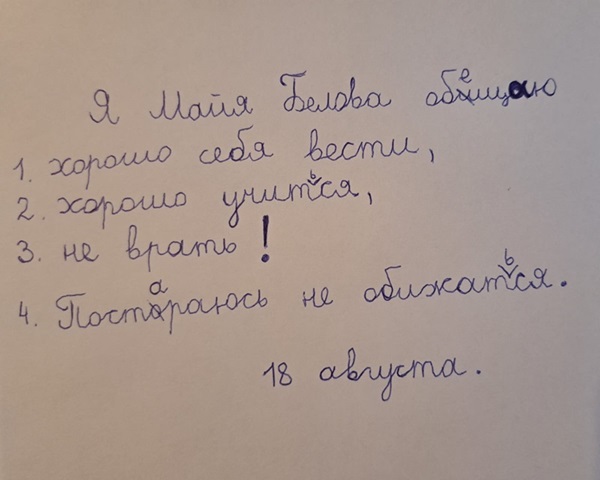 Я Майя Белова обещаю
1. хорошо себя вести,
2. хорошо учиться,
3. не врать!
4. Постараюсь не обижаться.
18 августа.